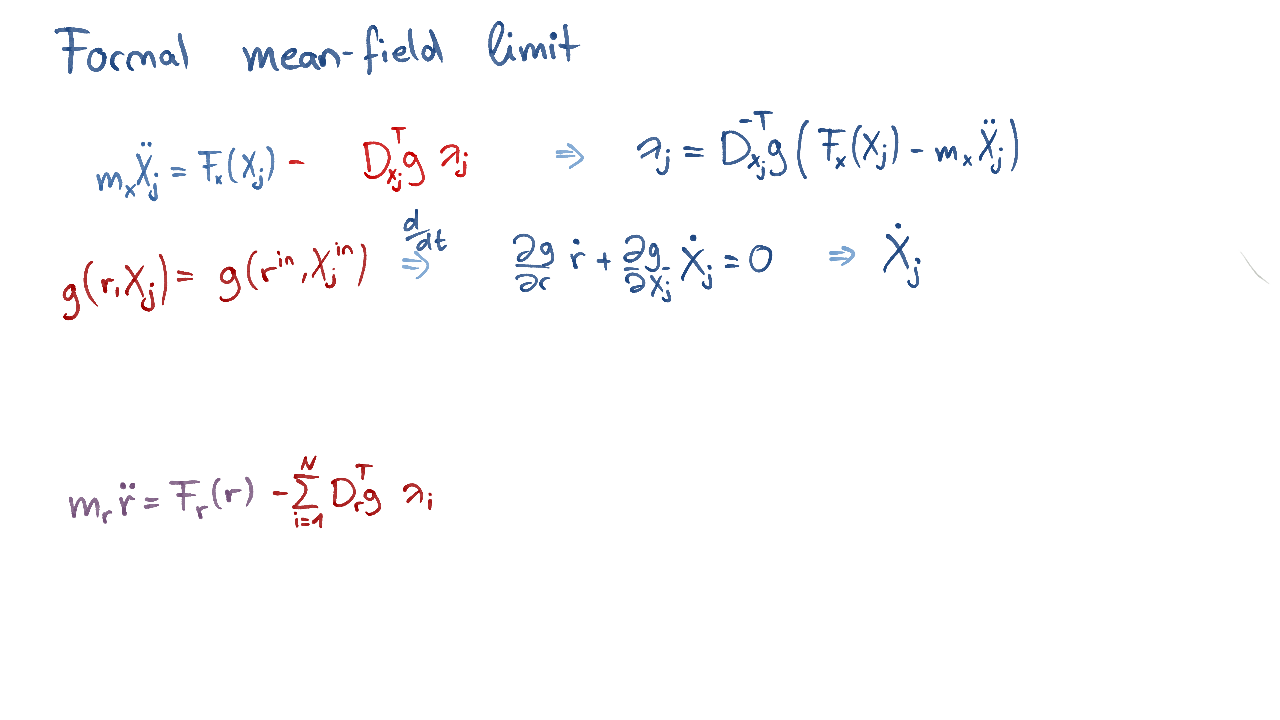 Formal mean-field limit
m_x Ẍ_j = F_x(X_j) - D_{x_j}^T g λ_j ⇒ λ_j = D_{x_j}^{-T} g (F_x(X_j) - m_x Ẍ_j)
g(r, X_j) = g(r^{in}, X_j^{in}) d/dt ⇒ ∂g/∂r ṙ + ∂g/∂X_j Ẋ_j = 0 ⇒ Ẋ_j
m_r r̈ = F_r(r) - ∑_{i=1}^N D_r^T g λ_i